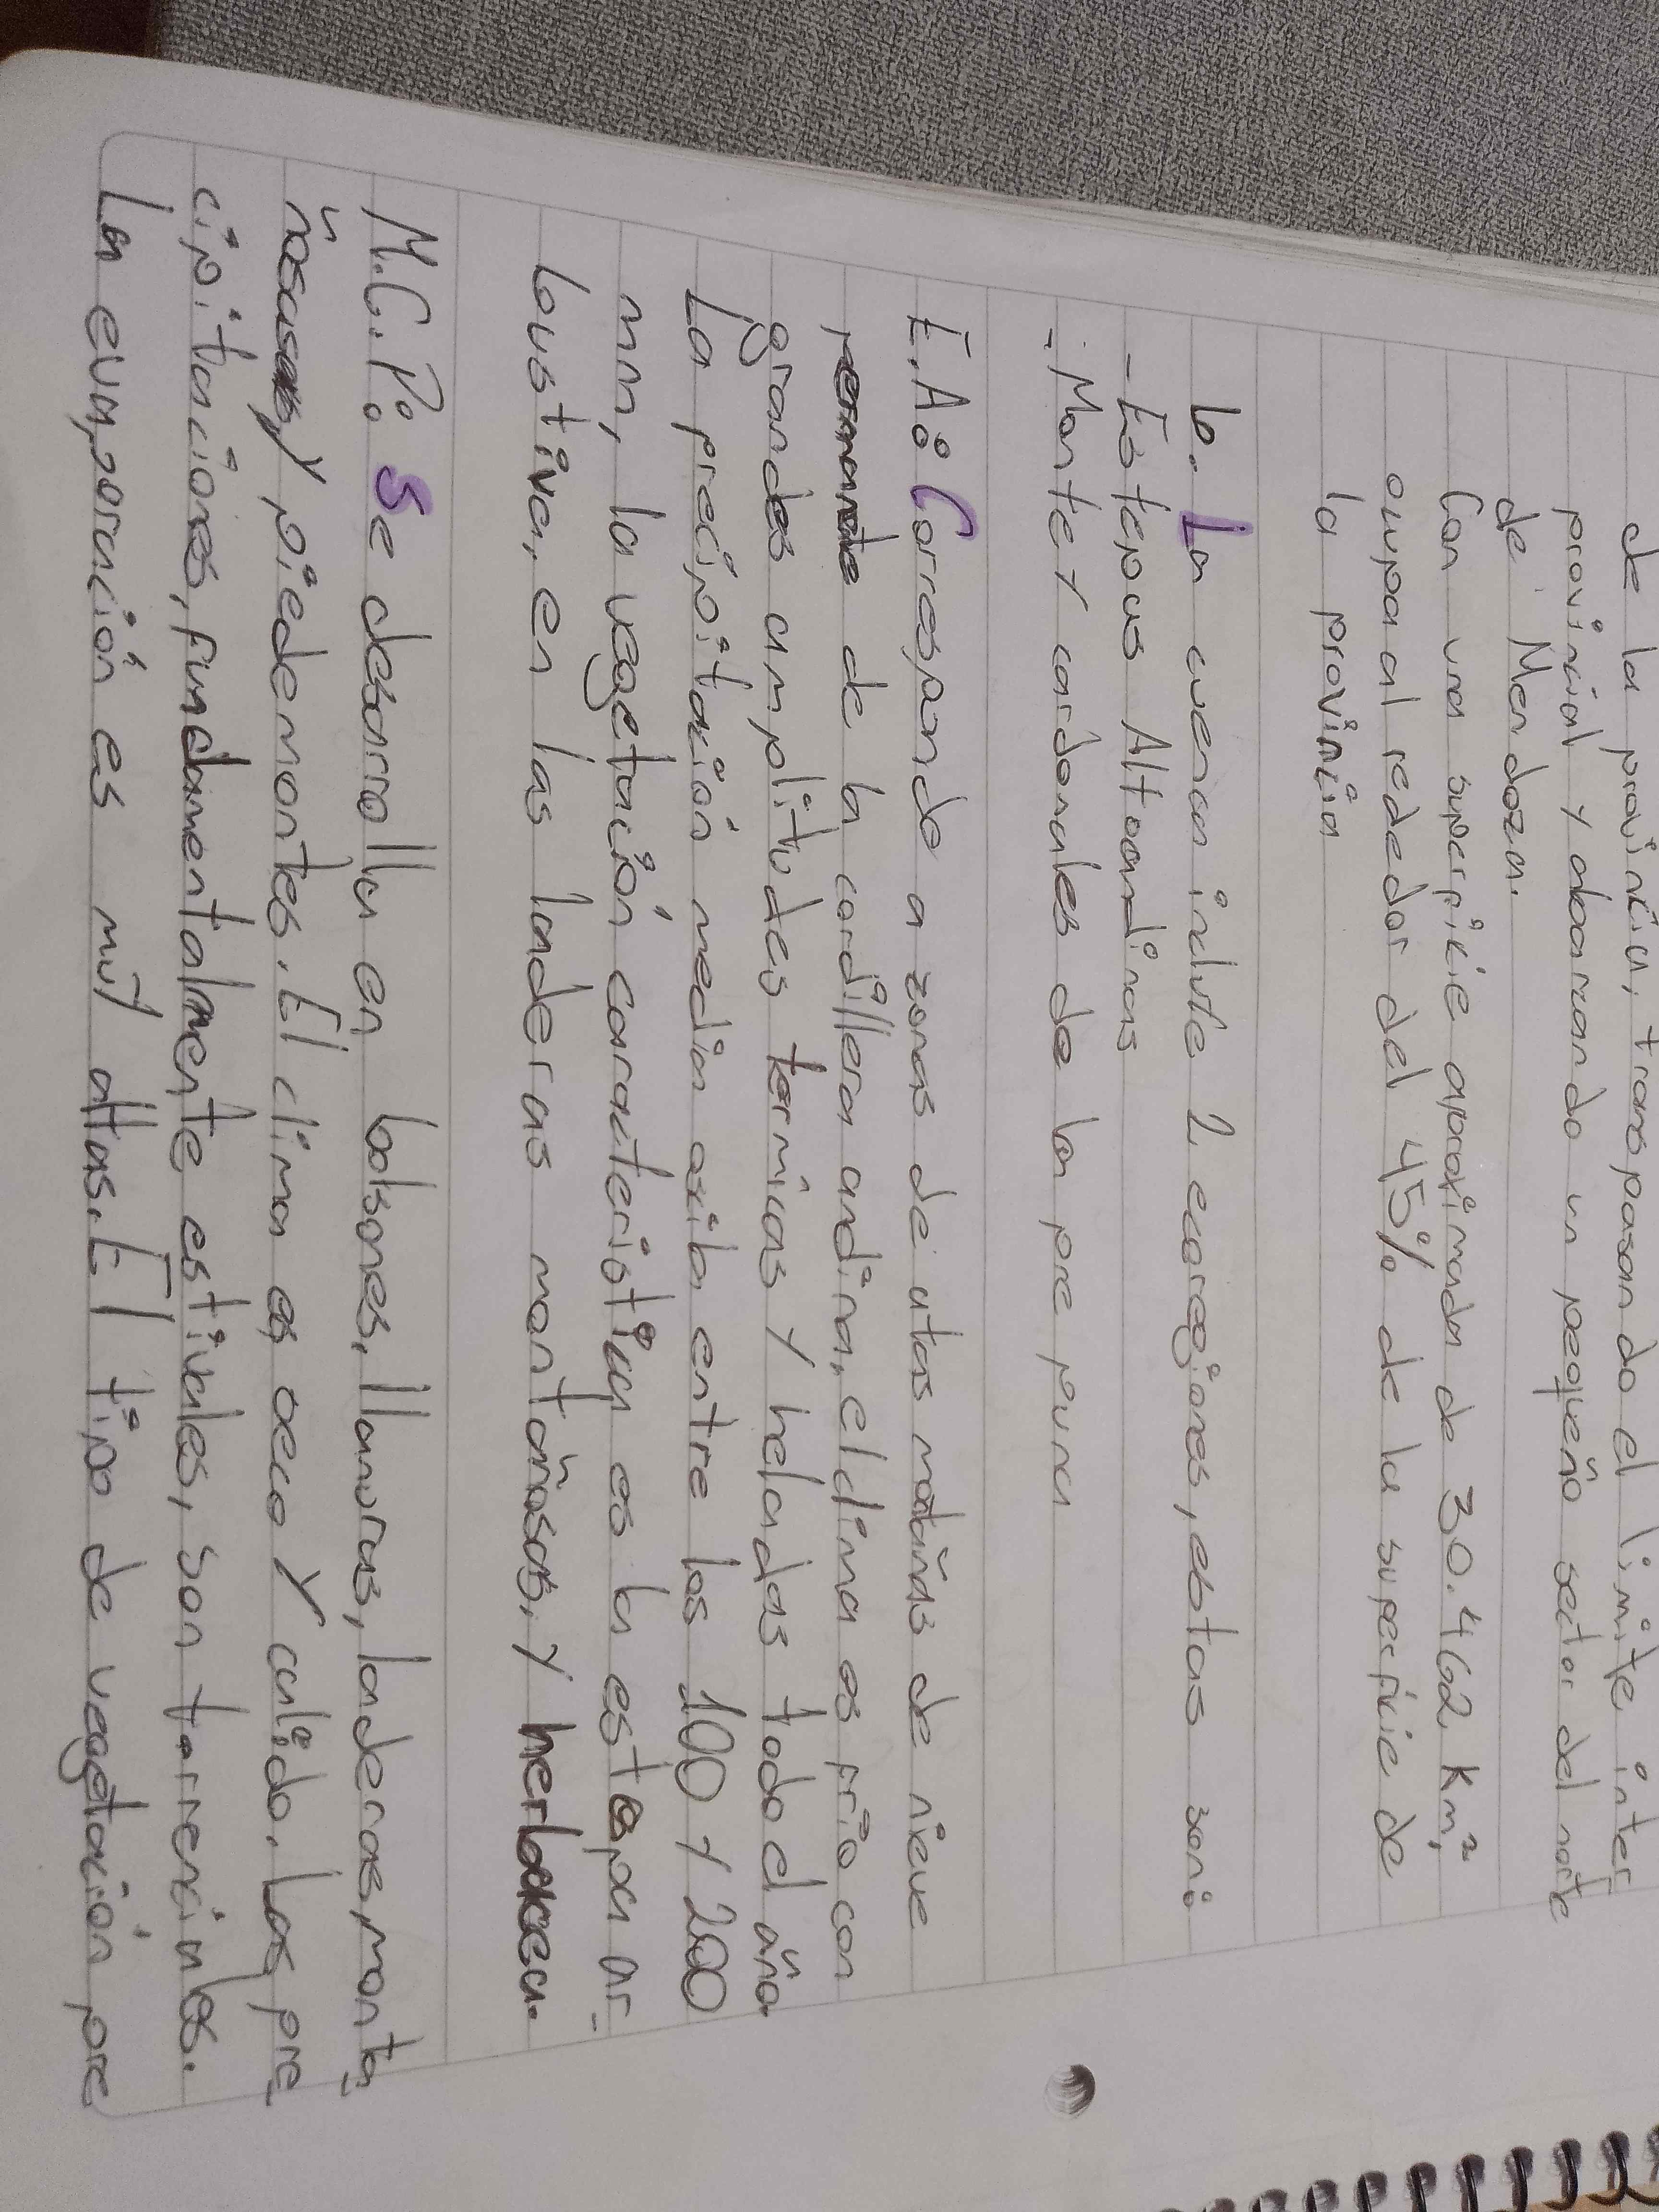 de la provincia, transpasando el limite inter
provincial y abarcando un pequeño sector del norte
de Mendoza.
Con una superficie aproximada de 30.462 km²,
ocupa al rededor del 45% de la superficie de
la provincia
b. La cuenca incluye 2 ecoregiones, estas son:
- Estepas Altoandinas
- Monte y cardonales de la pre puna
E.A: Corresponde a zonas de altas motañas de nieve
permanete de la cordillera andina, el clima es frio con
grandes amplitudes termicas y heladas todo el año.
La precipitación media oscila entre los 100 y 200
mm, la vegetación caracteristica es la estepa ar-
bustiva, en las laderas montañosas, y herbacea.
M.C.P: Se desarrolla en bolsones, llanuras, laderas, monta
ñosas y piedemontes. El clima es seco y calido. Las pre
cipitaciones, fundamentalmente estivales, son torrenciales.
La evaporación es muy altas. El tipo de vegetación pre